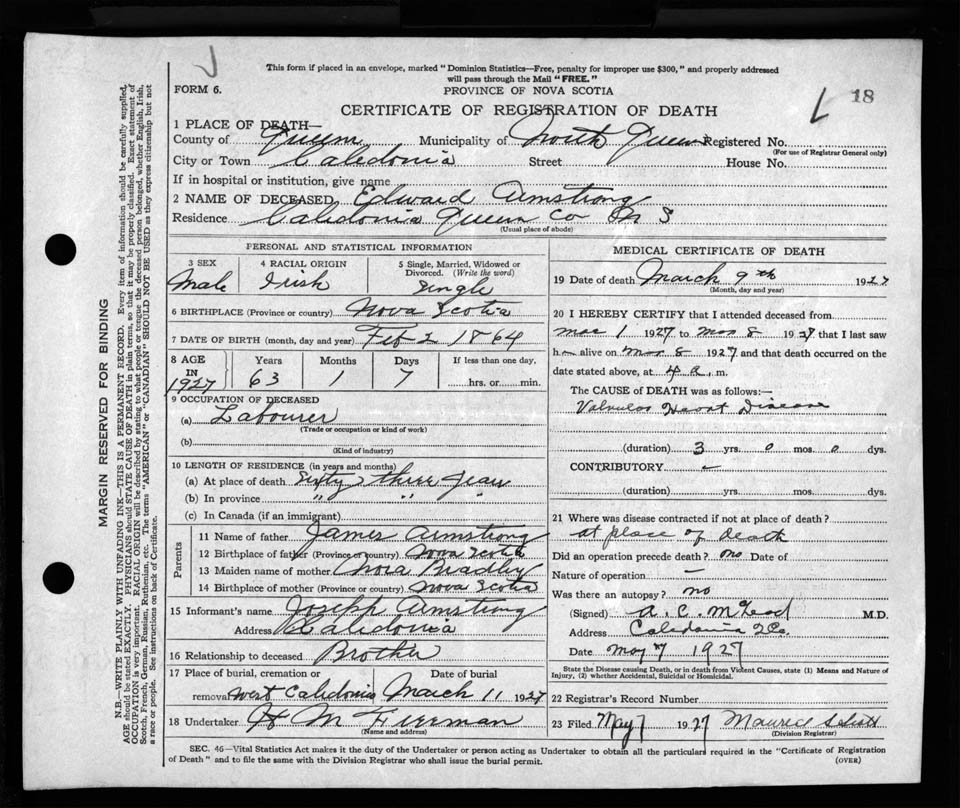 This form if placed in an envelope, marked "Dominion Statistics—Free, penalty for improper use $300," and properly addressed
will pass through the Mail "FREE."
FORM 6.
PROVINCE OF NOVA SCOTIA
CERTIFICATE OF REGISTRATION OF DEATH
18
1 PLACE OF DEATH—
County of Queens Municipality of North Queens Registered No.
(For use of Registrar General only)
City or Town Caledonia Street House No.
If in hospital or institution, give name
2 NAME OF DECEASED Edward Armstrong
Residence Caledonia Queens Co N S
(Usual place of abode)
PERSONAL AND STATISTICAL INFORMATION
3 SEX 4 RACIAL ORIGIN 5 Single, Married, Widowed or Divorced. (Write the word)
Male Irish Single
6 BIRTHPLACE (Province or country) Nova Scotia
7 DATE OF BIRTH (month, day and year) Feb 2 1864
8 AGE IN 1927 Years 63 Months 1 Days 7 If less than one day, hrs. or min.
9 OCCUPATION OF DECEASED
(a) Labourer
(Trade or occupation or kind of work)
(b)
(Kind of industry)
10 LENGTH OF RESIDENCE (in years and months)
(a) At place of death Sixty three years
(b) In province " " "
(c) In Canada (if an immigrant)
Parents
11 Name of father James Armstrong
12 Birthplace of father (Province or country) Nova Scotia
13 Maiden name of mother Nora Bradley
14 Birthplace of mother (Province or country) Nova Scotia
15 Informant's name Joseph Armstrong
Address Caledonia
16 Relationship to deceased Brother
17 Place of burial, cremation or Date of burial
removal West Caledonia March 11 1927
18 Undertaker H M Freeman
(Name and address)
MEDICAL CERTIFICATE OF DEATH
19 Date of death March 9th 1927
(Month, day and year)
20 I HEREBY CERTIFY that I attended deceased from
Mar 1 1927 to Mar 8 1927 that I last saw
h alive on Mar 8 1927 and that death occurred on the
date stated above, at 4 a. m.
The CAUSE of DEATH was as follows:—
Valvular Heart Disease
(duration) 3 yrs. 0 mos. 0 dys.
CONTRIBUTORY —
(duration) yrs. mos. dys.
21 Where was disease contracted if not at place of death?
at place of death
Did an operation precede death? no Date of
Nature of operation —
Was there an autopsy? no
(Signed) A. C. McLeod M.D.
Address Caledonia
Date May 7 1927
State the Disease causing Death, or in death from Violent Causes, state (1) Means and Nature of
Injury, (2) whether Accidental, Suicidal or Homicidal.
22 Registrar's Record Number
23 Filed May 7 1927 Maurice
(Division Registrar)
SEC. 46—Vital Statistics Act makes it the duty of the Undertaker or person acting as Undertaker to obtain all the particulars required in the "Certificate of Registration
of Death" and to file the same with the Division Registrar who shall issue the burial permit.
(OVER)
MARGIN RESERVED FOR BINDING
N.B.—WRITE PLAINLY WITH UNFADING INK—THIS IS A PERMANENT RECORD. Every item of information should be carefully supplied,
AGE should be stated EXACTLY. PHYSICIANS should STATE CAUSE OF DEATH in plain terms, so that it may be properly classified. Exact statement of
OCCUPATION is very important. RACIAL ORIGIN will be described by stating to what people or tongue the deceased person belonged, whether English, Irish,
Scotch, French, German, Russian, Ruthenian, etc. The terms "AMERICAN" or "CANADIAN" SHOULD NOT BE USED as they express citizenship but not
a race or people. See instructions on back of Certificate.